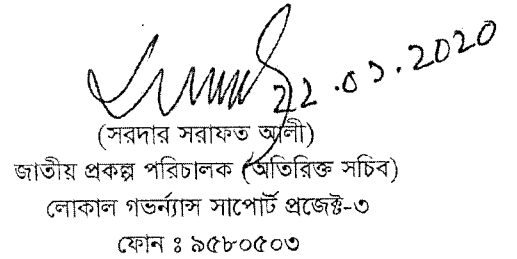 22.03.2020
(সরদার সরাফত আলী)
জাতীয় প্রকল্প পরিচালক (অতিরিক্ত সচিব)
লোকাল গভর্ন্যান্স সাপোর্ট প্রজেক্ট-৩
ফোন ঃ ৯৫৮০৫০৩